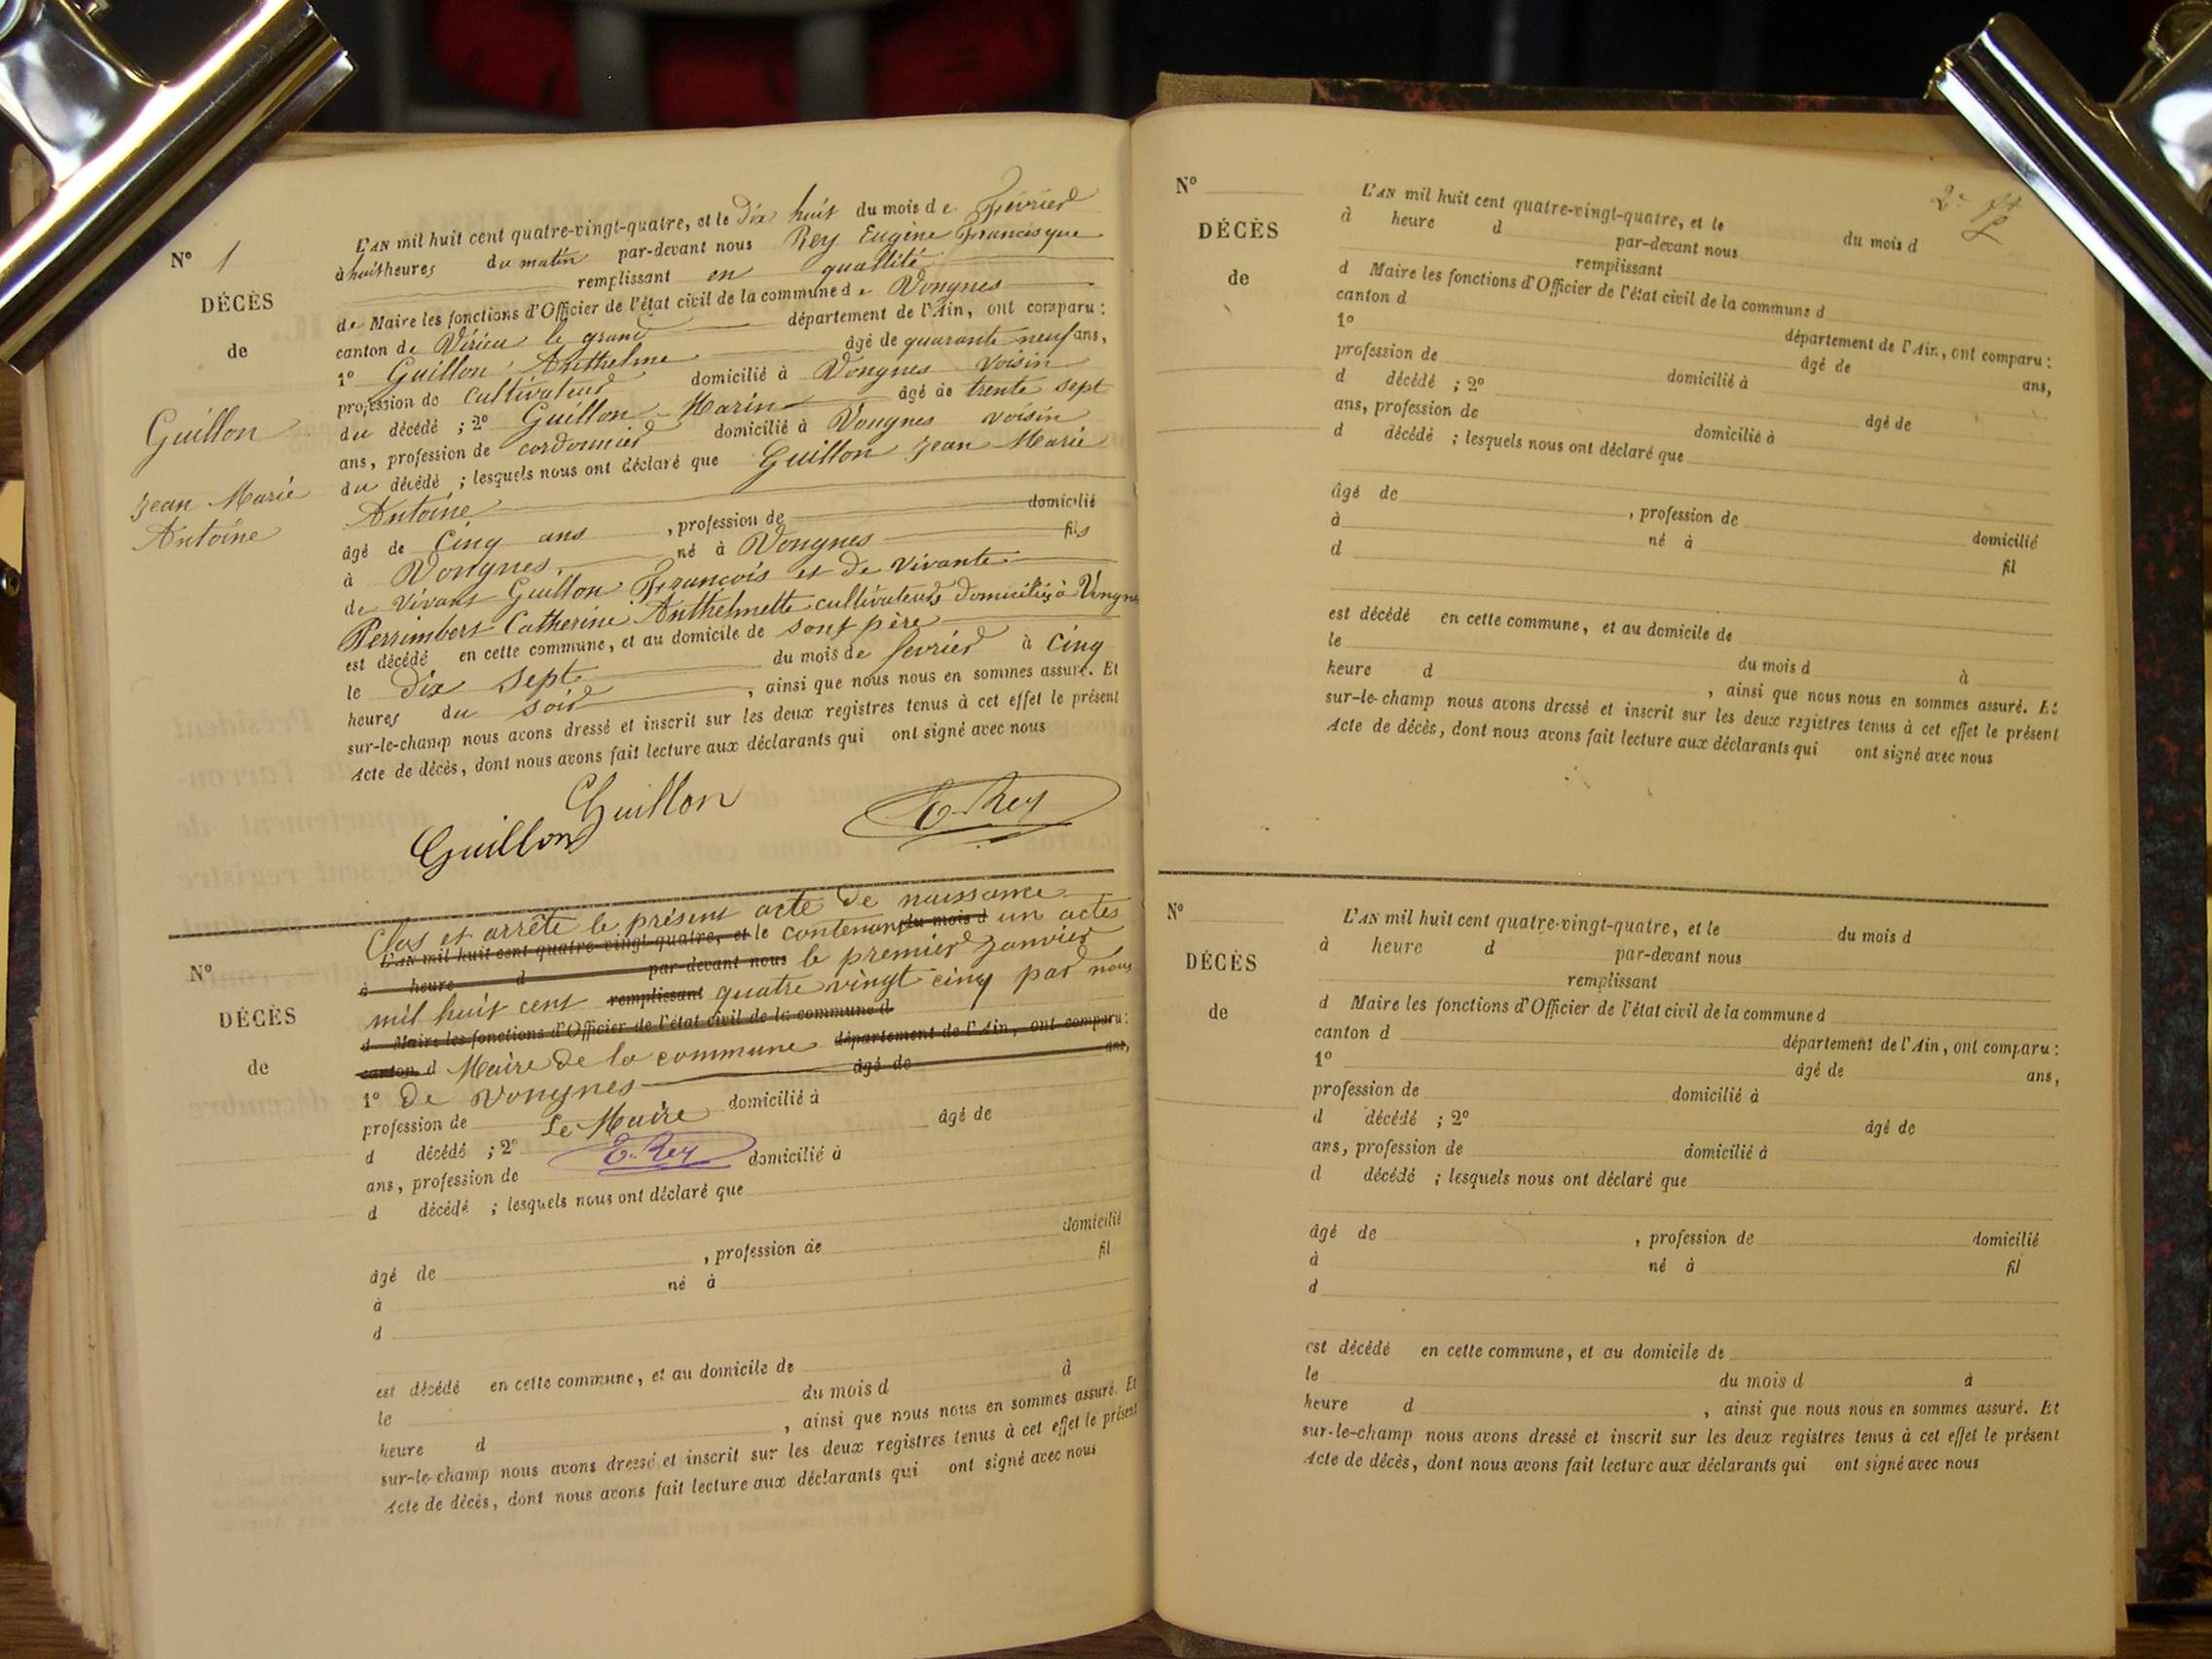 N° 1
DÉCÈS
de
Guillon
Jean Marie
Antoine
L'AN mil huit cent quatre-vingt-quatre, et le Dix huit du mois de Février
à huit heures du matin par-devant nous Rey Eugène Francisque
remplissant en quallité
de Maire les fonctions d'Officier de l'état civil de la commune de Vongnes
canton de Virieu le grand département de l'Ain, ont comparu :
1° Guillon Anthelme âgé de quarante neuf ans,
profession de cultivateur domicilié à Vongnes voisin
du décédé ; 2° Guillon Marin âgé de trente sept
ans, profession de cordonnier domicilié à Vongnes voisin
du décédé ; lesquels nous ont déclaré que Guillon Jean Marie
Antoine
âgé de Cinq ans , profession de domicilié
à Vongnes, né à Vongnes fils
de vivant Guillon François et de vivante
Perrimbert Catherine Anthelmette cultivateurs domiciliés à Vongnes
est décédé en cette commune, et au domicile de sont père
le dix sept du mois de fevrier à Cinq
heures du soir , ainsi que nous nous en sommes assuré. Et
sur-le-champ nous avons dressé et inscrit sur les deux registres tenus à cet effet le présent
Acte de décès, dont nous avons fait lecture aux déclarants qui ont signé avec nous
Guillon
Guillon
E. Rey
N°
DÉCÈS
de
Clos et arrête le présent acte de naissance
L'AN mil huit cent quatre-vingt-quatre, et le contenant du mois d un actes
à heure d par-devant nous le premier Janvier
mil huit cent remplissant quatre vingt cinq par nous
d Maire les fonctions d'Officier de l'état civil de la commune d
canton d Maire de la commune département de l'Ain, ont comparu :
1° de Vongnes âgé de ans,
profession de Le Maire domicilié à
d décédé ; 2° E. Rey âgé de
ans, profession de domicilié à
d décédé ; lesquels nous ont déclaré que
âgé de , profession de domicilié
à né à fil
d
est décédé en cette commune, et au domicile de
le du mois d à
heure d , ainsi que nous nous en sommes assuré. Et
sur-le-champ nous avons dressé et inscrit sur les deux registres tenus à cet effet le présent
Acte de décès, dont nous avons fait lecture aux déclarants qui ont signé avec nous
2e
N°
DÉCÈS
de
L'AN mil huit cent quatre-vingt-quatre, et le du mois d
à heure d par-devant nous
remplissant
d Maire les fonctions d'Officier de l'état civil de la commune d
canton d département de l'Ain, ont comparu :
1° âgé de ans,
profession de domicilié à
d décédé ; 2° âgé de
ans, profession de domicilié à
d décédé ; lesquels nous ont déclaré que
âgé de , profession de domicilié
à né à fil
d
est décédé en cette commune, et au domicile de
le du mois d à
heure d , ainsi que nous nous en sommes assuré. Et
sur-le-champ nous avons dressé et inscrit sur les deux registres tenus à cet effet le présent
Acte de décès, dont nous avons fait lecture aux déclarants qui ont signé avec nous
N°
DÉCÈS
de
L'AN mil huit cent quatre-vingt-quatre, et le du mois d
à heure d par-devant nous
remplissant
d Maire les fonctions d'Officier de l'état civil de la commune d
canton d département de l'Ain, ont comparu :
1° âgé de ans,
profession de domicilié à
d décédé ; 2° âgé de
ans, profession de domicilié à
d décédé ; lesquels nous ont déclaré que
âgé de , profession de domicilié
à né à fil
d
est décédé en cette commune, et au domicile de
le du mois d à
heure d , ainsi que nous nous en sommes assuré. Et
sur-le-champ nous avons dressé et inscrit sur les deux registres tenus à cet effet le présent
Acte de décès, dont nous avons fait lecture aux déclarants qui ont signé avec nous